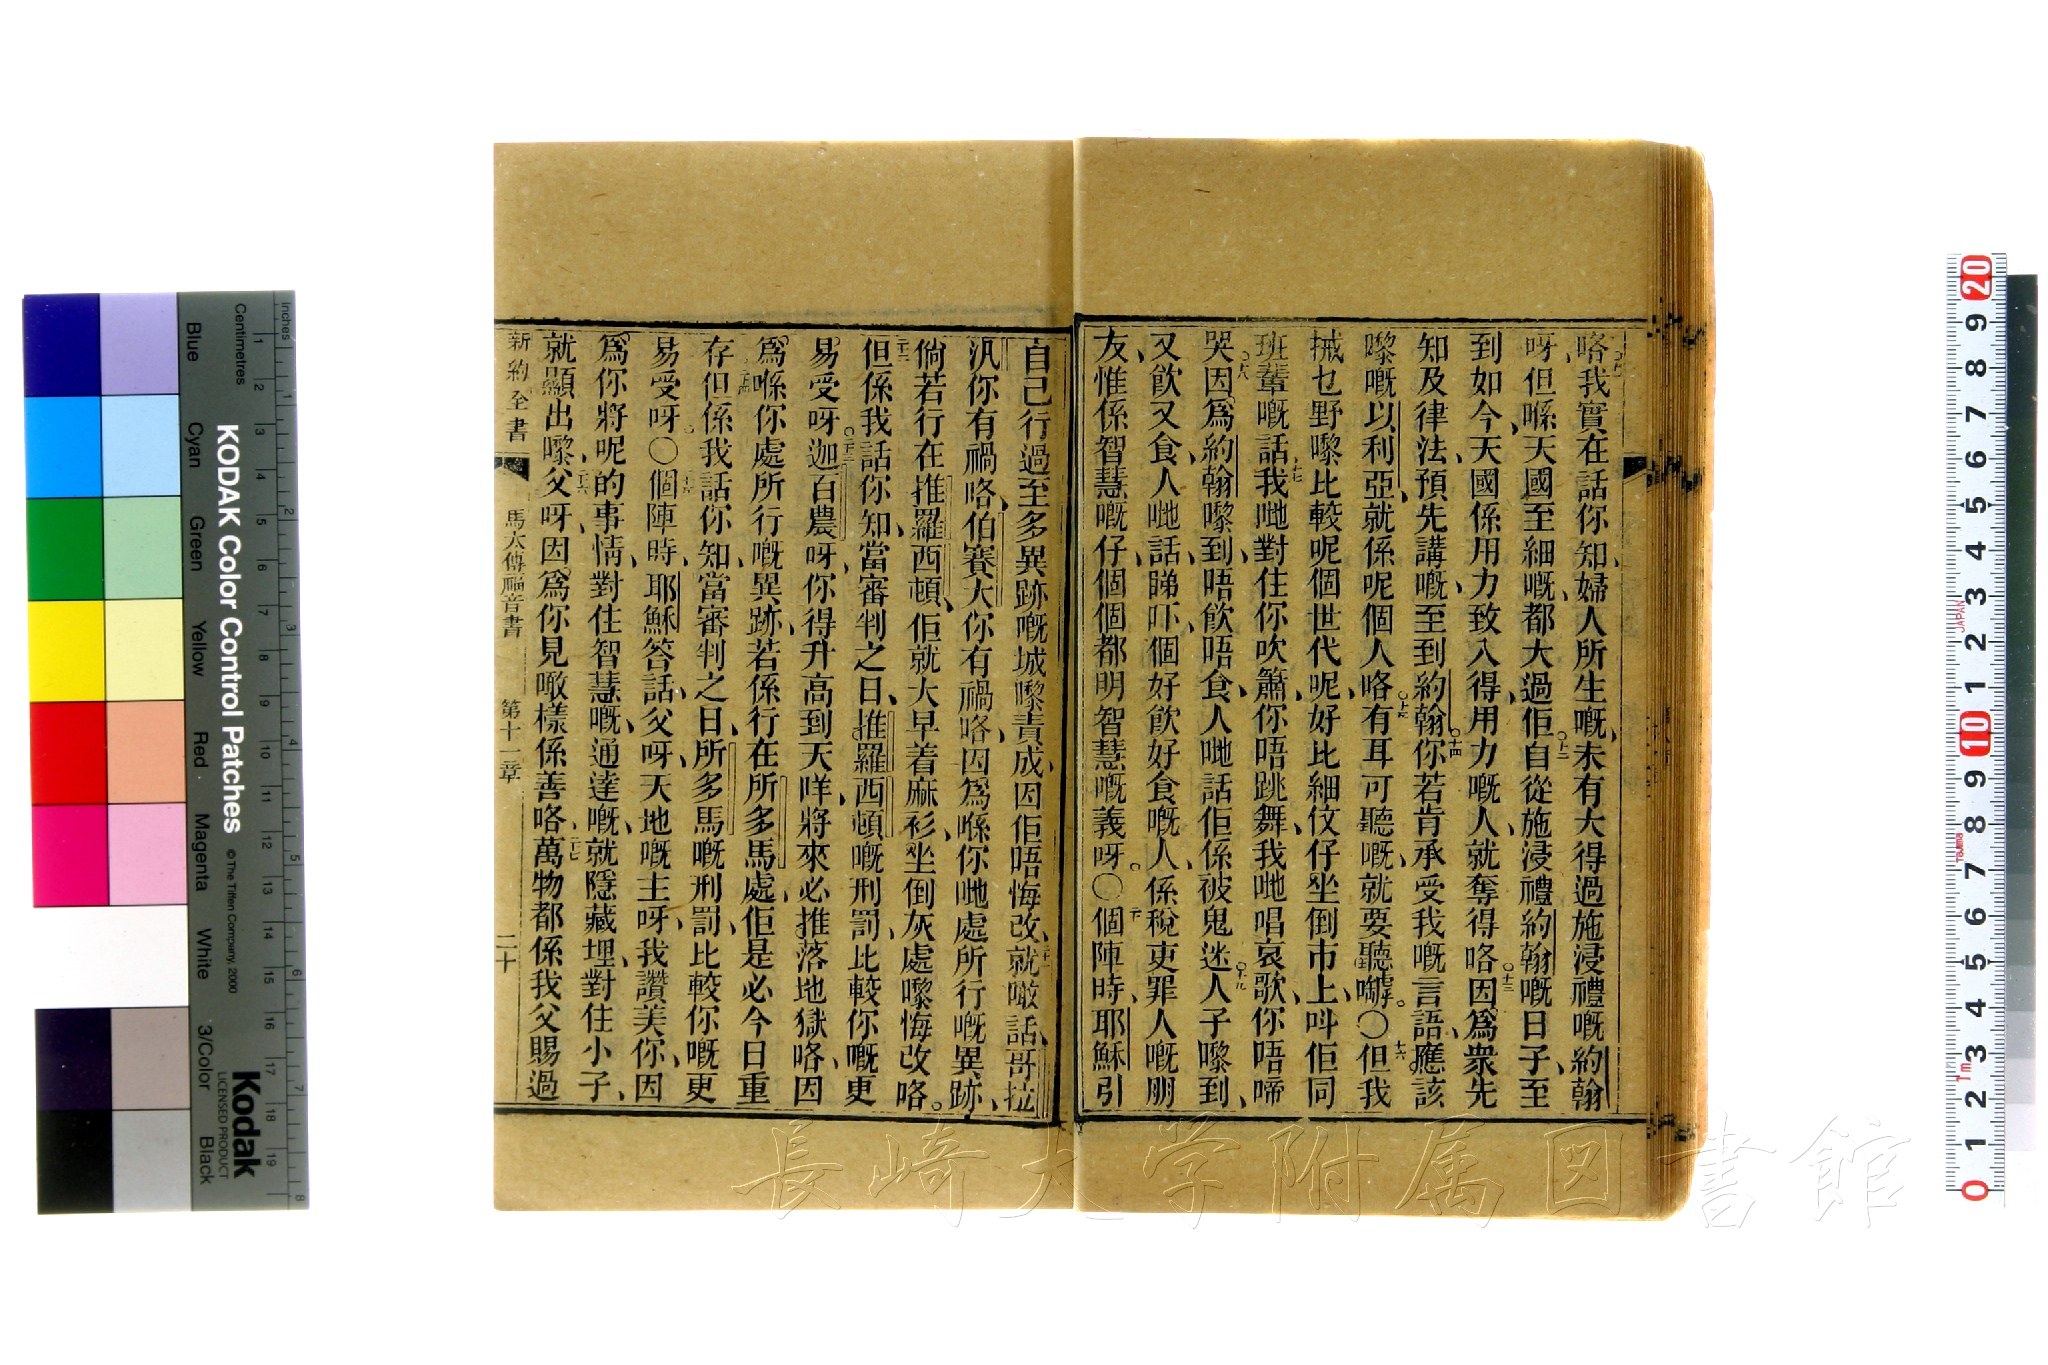 咯、我實在話你知、婦人所生嘅、未有大得過施浸禮嘅約翰
呀、但喺天國至細嘅、都大過佢、自從施浸禮約翰嘅日子、至
到如今、天國係用力致入得、用力嘅人、就奪得咯、因爲衆先
知及律法、預先講嘅、至到約翰、你若肯承受我嘅言語、應該
嚟嘅以利亞、就係呢個人咯、有耳可聽嘅、就要聽嚹。〇但我
搣乜野嚟比較呢個世代呢、好比細伩仔坐倒市上、呌佢同
班輩嘅話、我哋對住你吹簫、你唔跳舞、我哋唱哀歌、你唔啼
哭、因爲約翰嚟到、唔飲唔食、人哋話佢係被鬼迷、人子嚟到、
又飲又食、人哋話、睇吓、個好飲好食嘅人、係稅吏罪人嘅朋
友、惟係智慧嘅仔、個個都明智慧嘅義呀。〇個陣時、耶穌引
自己行過至多異跡嘅城嚟責成、因佢唔悔改、就噉話、哥拉
汎、你有禍咯、伯賽大、你有禍咯、因爲喺你哋處所行嘅異跡、
倘若行在推羅西頓、佢就大早着麻衫、坐倒灰處嚟悔改咯。
但係我話你知、當審判之日、推羅西頓嘅刑罰、比較你嘅更
易受呀。迦百農呀、你得升高到天咩、將來必推落地獄咯、因
爲喺你處所行嘅異跡、若係行在所多馬處、佢是必今日重
存、但係我話你知、當審判之日、所多馬嘅刑罰、比較你嘅更
易受呀。〇個陣時、耶穌答話、父呀、天地嘅主呀、我讚美你、因
爲你將呢的事情、對住智慧嘅通達嘅、就隱藏埋、對住小子、
就顯出嚟、父呀、因爲你見噉樣係善咯、萬物都係我父賜過
新約全書 馬太傳福音書 第十一章 二十
長崎大学附属図書館
KODAK Color Control Patches
© The Tiffen Company, 2000
Kodak
LICENSED PRODUCT
Inches
Centimetres
Blue Cyan Green Yellow Red Magenta White 3/Color Black
JAPAN